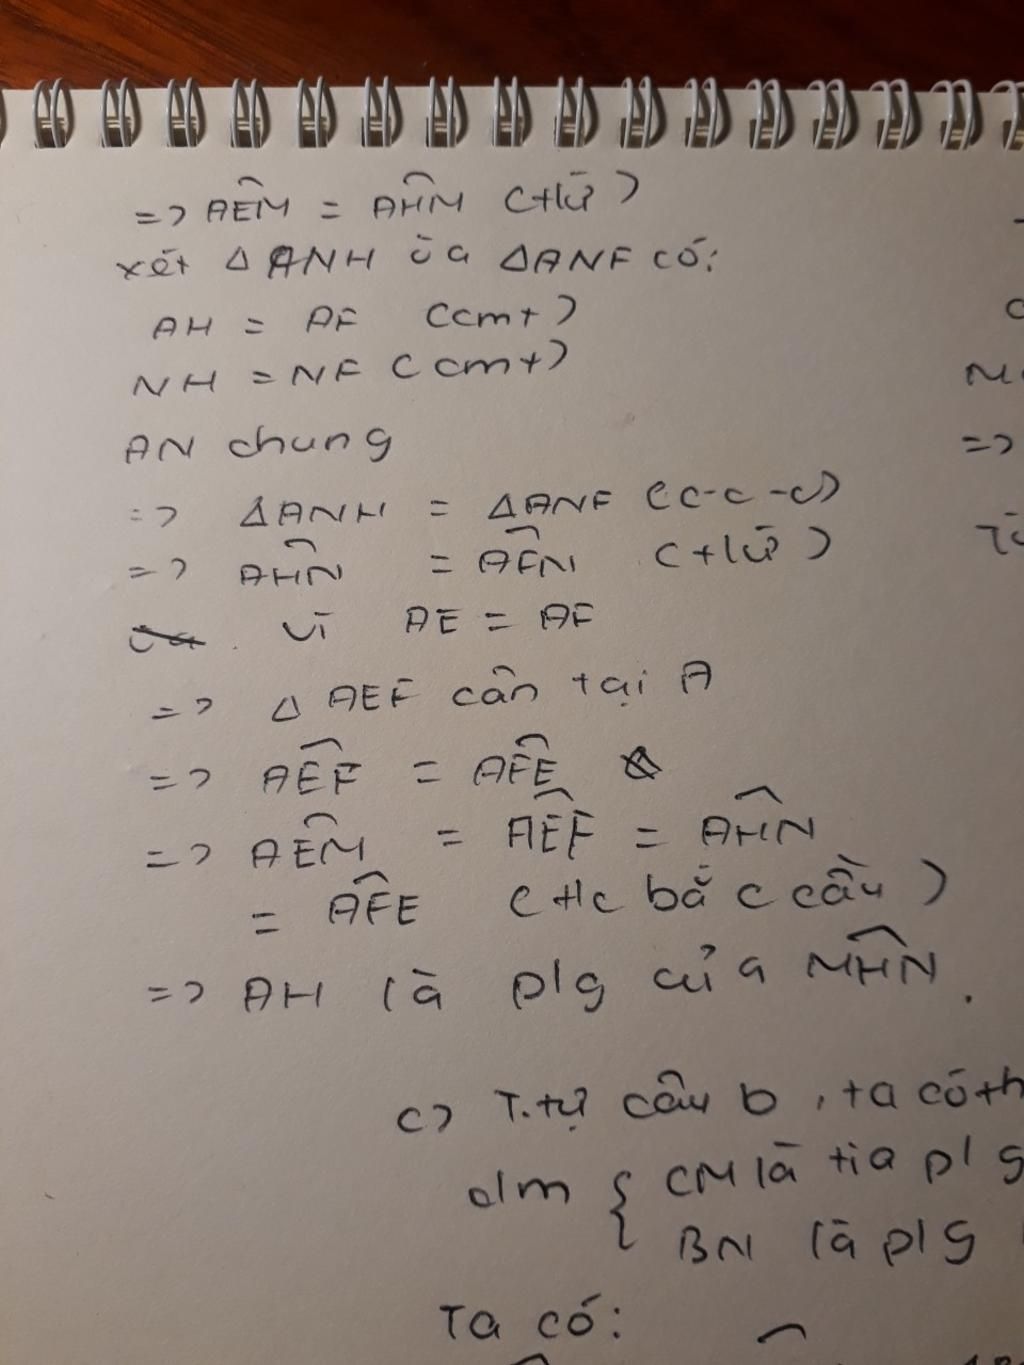 => AÊM = AĤM (+lứ)
xét ΔANH và ΔANF có:
AH = AF (cmt)
NH = NF (cmt)
AN chung
=> ΔANH = ΔANF (c-c-c)
=> AĤN = AF̂N (+lứ)
vì AE = AF
=> Δ AEF cân tại A
=> AÊF = AF̂E
=> AÊM = AÊF = AĤN
= AF̂E (t/c bắc cầu)
=> AH là p/g của MĤN.
c) T.tự câu b, ta có th
đm { CM là tia p/g
BN là p/g
Ta có: